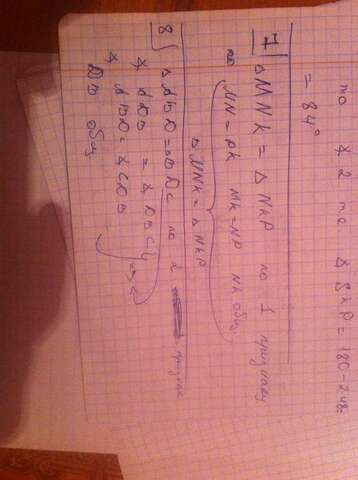 то ∡ 2 то ∡ SKP = 180 - 2·48=
= 84°
7 ∆ MNK = ∆ NKP по 1 признаку
MN = PK MK = NP NK общ.
∆ MNK = ∆ NKP
8 ∆ ABD = BDC по 2 признаку
∡ ADB = ∡ DBC
∡ ABD = ∡ CDB
DB общ